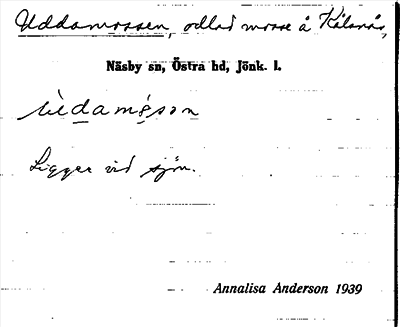 Uddamossen, odlad mosse å Kålanås,
Näsby sn, Östra hd, Jönk. l.
Ligger vid sjön.
Annalisa Anderson 1939